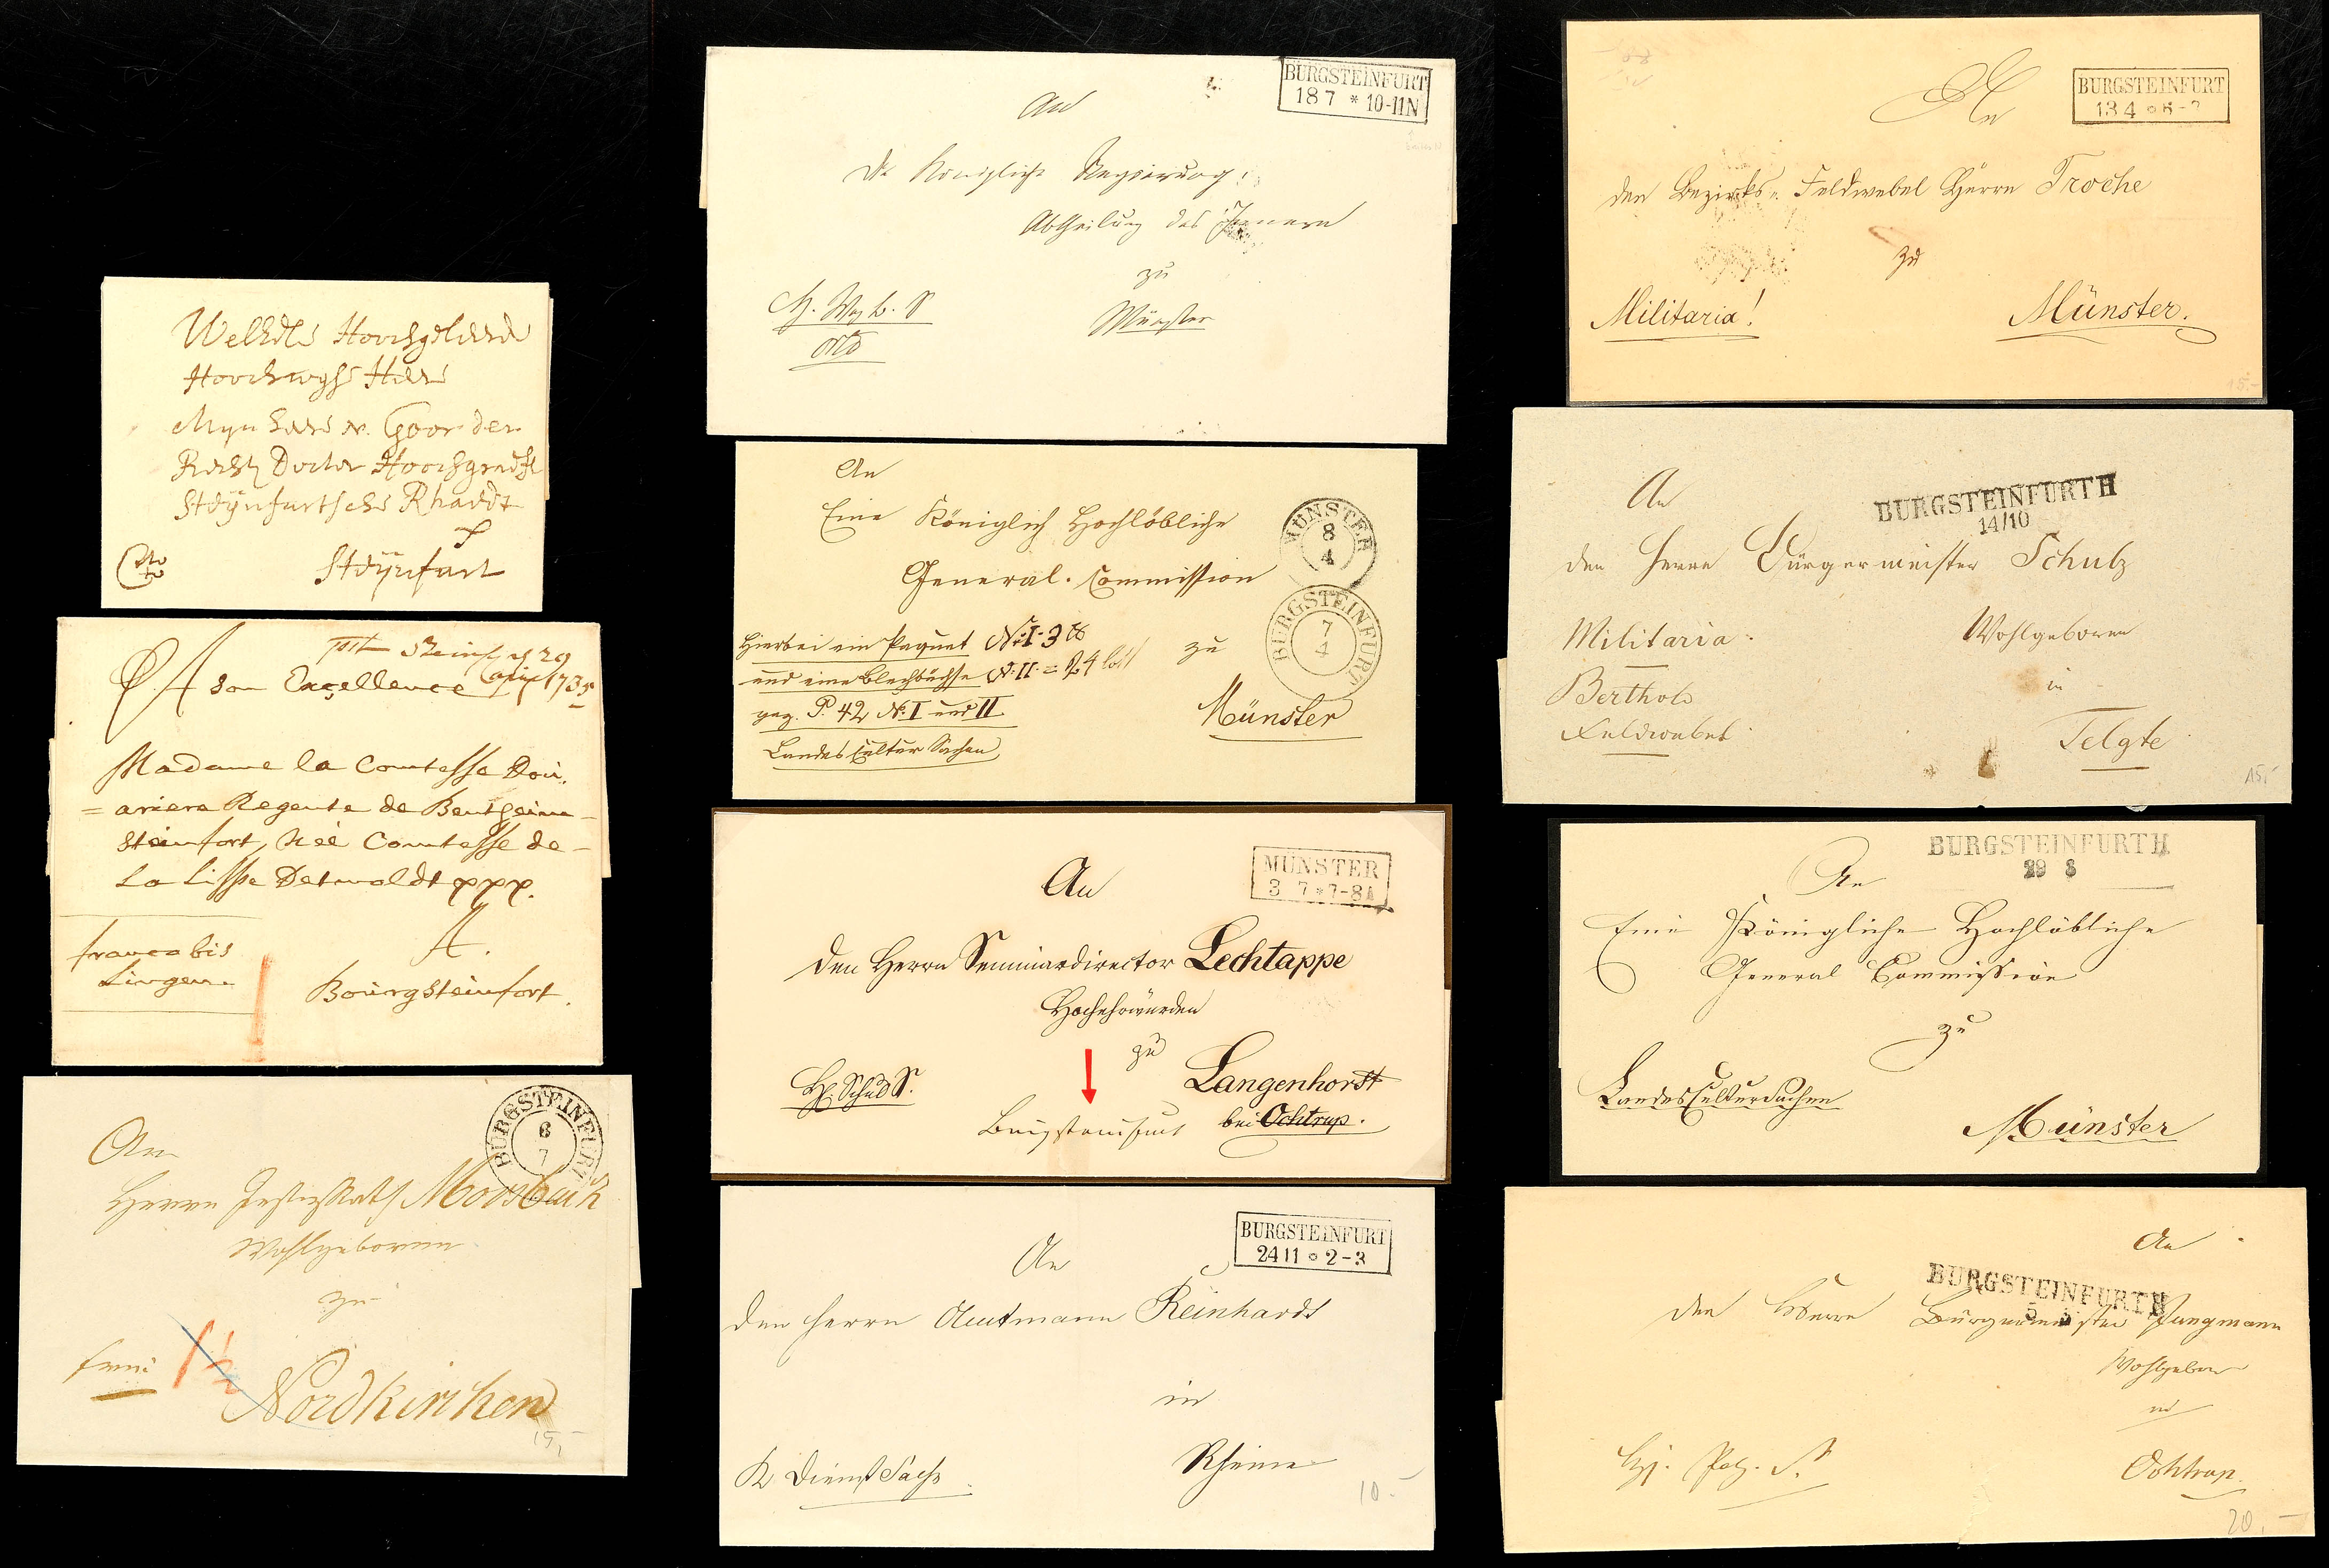 Hoochgeleerde
Mijn heer v. Goor der
Rechten Doctor Hoochgraeffl
Steÿnfurtsche Rhaedt
Cito
Steÿnfurt
A son Excellence
1735
Madame la Comtesse Dou„
= ariere Regente de Bentheim –
Steinfort, née Comtesse de –
La Lippe Detmoldt ppp.
franco bis
Lingen.
A.
Bourgsteinfort.
BURGSTEINFURT
6
7
An
Herrn Justizrath
Wohlgeboren
zu
frei
1½
Nordkirchen
15,-
BURGSTEINFURT
18 7 * 10-11N
An
die Königliche Regierung
Abtheilung des Innern
zu
Münster
An
Eine Königlich Hochlöbliche
General-Commission
MÜNSTER
8
4
BURGSTEINFURT
7
4
Hierbei ein Paquet No. I. 3 ℔
und eine Blechbüchse No. II. = 24 loth
gez. P. 42 No. I und II
zu
Münster
Landes Cultur Sachen
MÜNSTER
3 7 * 7-8A
An
den Herrn Seminardirector Lechtappe
Hochehrwürden
zu
Langenhorst
bei Ochtrup.
Hj. Schul S.
Burgsteinfurt
BURGSTEINFURT
24 11 o 2-3
An
den Herrn Amtmann Reinhardt
in
Rheine
K. Dienst Sache
10.-
BURGSTEINFURT
13 4
An
den Bezirks-Feldwebel Herrn Troche
zu
Militaria!
Münster.
15.-
An
BURGSTEINFURTH
14/10
den Herrn Bürgermeister Schulz
Militaria.
Wohlgeboren
Berthold
in
Feldwebel.
Telgte
15,-
BURGSTEINFURTH
29 8
An
Eine Königliche Hochlöbliche
General Commission
zu
Landes Cultur Sachen
Münster
An
BURGSTEINFURTH
den Herrn Bürgermeister Jungmann
Wohlgeboren
in
Ochtrup.
20,-